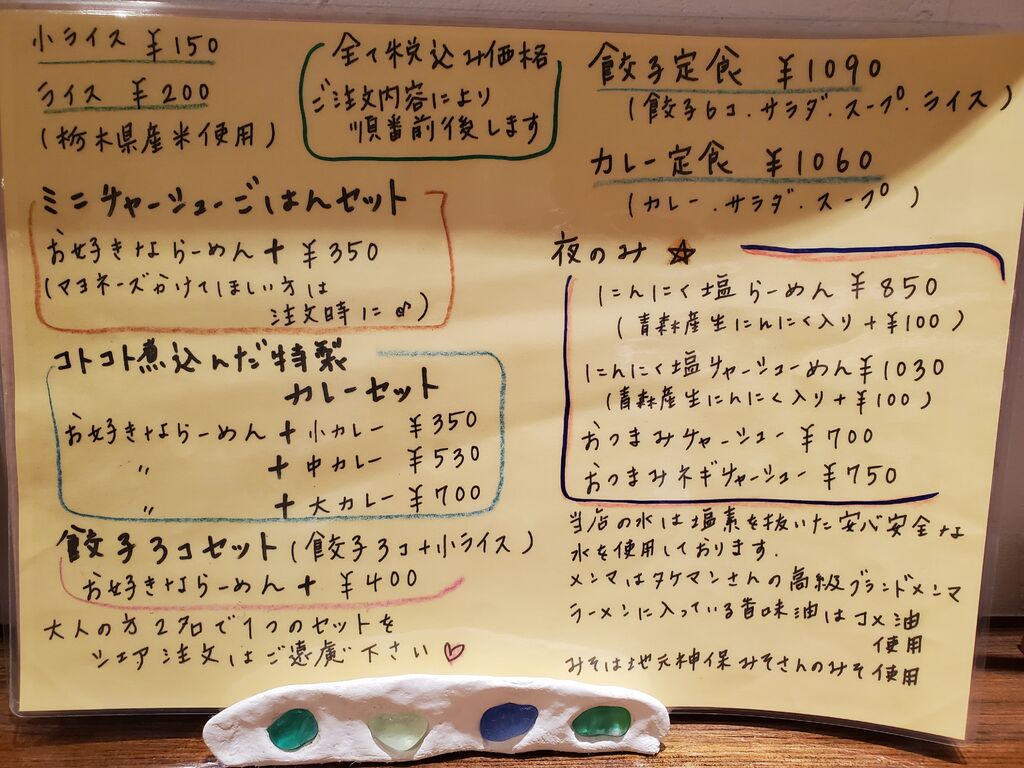 小ライス ¥150
ライス ¥200
(栃木県産米使用)
全て税込み価格
ご注文内容により
順番前後します
ミニチャーシューごはんセット
お好きならーめん + ¥350
(マヨネーズかけてほしい方は
注文時に♪)
コトコト煮込んだ特製
カレーセット
お好きならーめん + 小カレー ¥350
〃 + 中カレー ¥530
〃 + 大カレー ¥700
餃子3コセット(餃子3コ+小ライス)
お好きならーめん + ¥400
大人の方2名で1つのセットを
シェア注文はご遠慮下さい♡
餃子定食 ¥1090
(餃子6コ.サラダ.スープ.ライス)
カレー定食 ¥1060
(カレー.サラダ.スープ)
夜のみ ☆
にんにく塩らーめん ¥850
(青森産生にんにく入り+¥100)
にんにく塩チャーシューめん ¥1030
(青森産生にんにく入り+¥100)
おつまみチャーシュー ¥700
おつまみネギチャーシュー ¥750
当店の水は塩素を抜いた安心安全な
水を使用しております.
メンマはタケマンさんの高級ブランドメンマ
ラーメンに入っている香味油はコメ油
使用
みそは地元神保みそさんのみそ使用